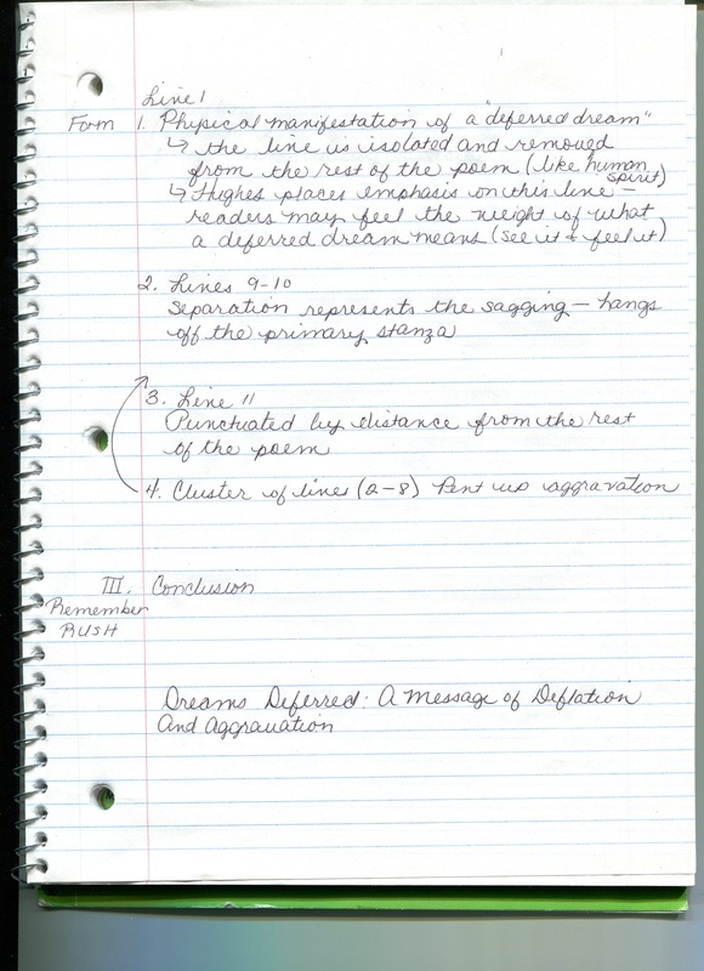 Line 1
Form 1. Physical manifestation of a "deferred dream"
↳ the line is isolated and removed
from the rest of the poem (like human
spirit)
↳ Hughes places emphasis on this line –
readers may feel the weight of what
a deferred dream means (see it & feel it)
2. Lines 9-10
Separation represents the sagging – hangs
off the primary stanza
3. Line 11
Punctuated by distance from the rest
of the poem
4. Cluster of lines (2-8) Pent up aggravation
III. Conclusion
Remember
RUSH
Dreams Deferred: A Message of Deflation
And Aggravation